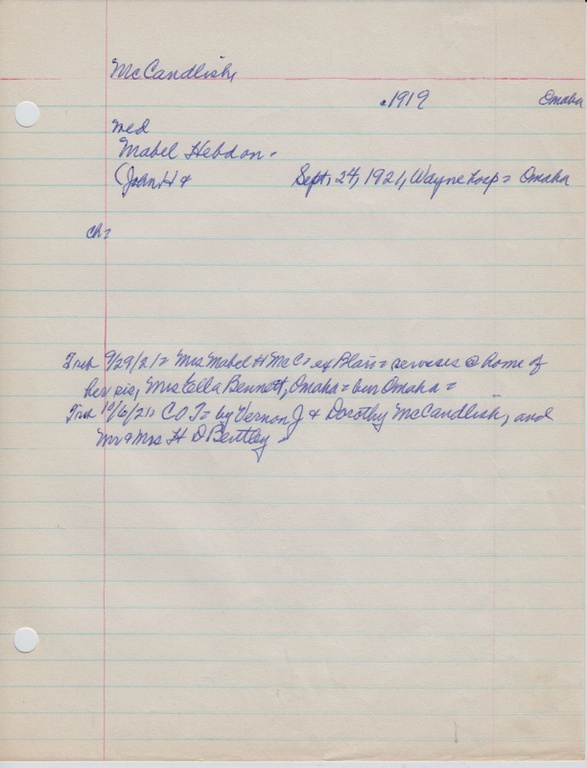 McCandlish
. 1919 Omaha
wed
Mabel Hebdon -
John H & Sept, 24, 1921, Wayne Hosp = Omaha
ch=
Trib 9/29/21= Mrs Mabel H McC= of Blair= services @ home of
her sis, Mrs Ella Bennett, Omaha = bur Omaha =
Trib 10/6/21= C O T= by Vernon J & Dorothy McCandlish, and
Mr & Mrs H D Bentley =